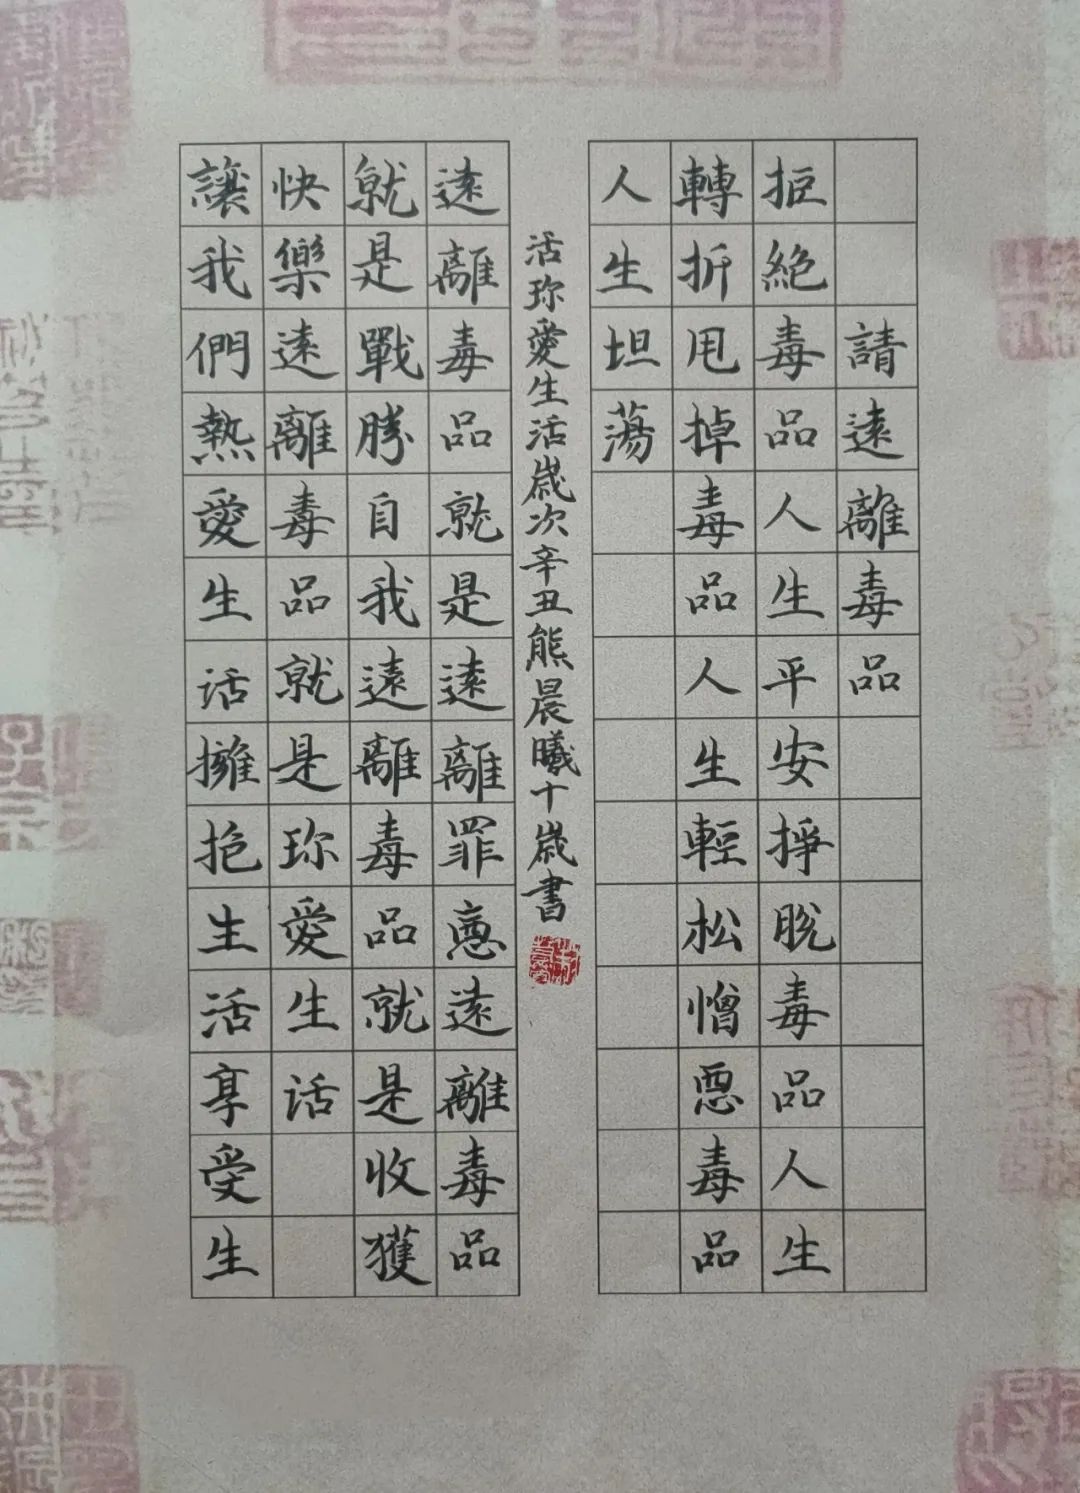 請遠離毒品
拒絶毒品人生平安掙脱毒品人生
轉折甩掉毒品人生輕松憎惡毒品
人生坦蕩
遠離毒品就是遠離罪惡遠離毒品
就是戰勝自我遠離毒品就是收獲
快樂遠離毒品就是珎愛生活
讓我們熱愛生活擁抱生活享受生
活珎愛生活歲次辛丑熊晨曦十歲書